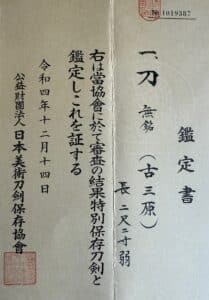 № 1019387
鑑定書
一、刀 無銘(古三原)
長 二尺二寸弱
右は當協會に於て審査の結果特別保存刀剣と
鑑定しこれを証する
令和四年十二月十四日
公益財團法人 日本美術刀剣保存協會